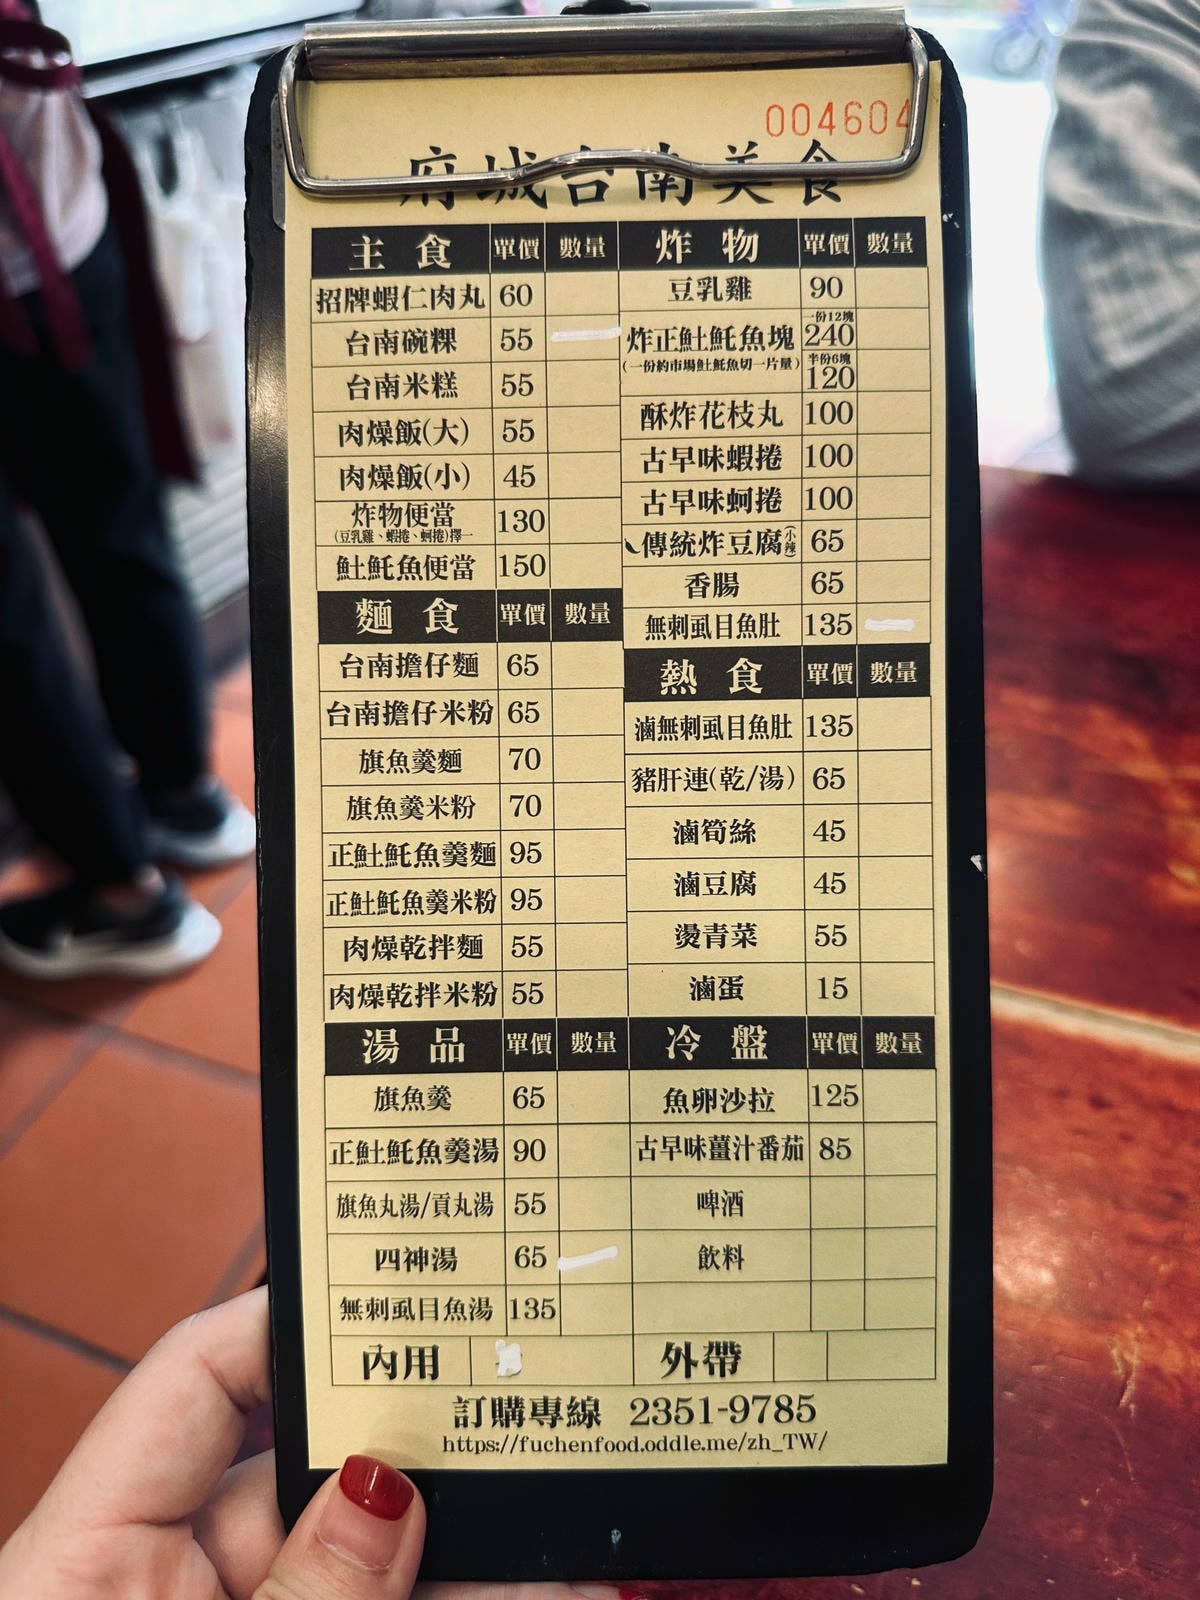 004604
府城台南美食
主食 單價 數量
招牌蝦仁肉丸 60
台南碗粿 55
台南米糕 55
肉燥飯(大) 55
肉燥飯(小) 45
炸物便當 130
(豆乳雞、蝦捲、蚵捲)擇一
𩵚魠魚便當 150
麵食 單價 數量
台南擔仔麵 65
台南擔仔米粉 65
旗魚羹麵 70
旗魚羹米粉 70
正𩵚魠魚羹麵 95
正𩵚魠魚羹米粉 95
肉燥乾拌麵 55
肉燥乾拌米粉 55
湯品 單價 數量
旗魚羹 65
正𩵚魠魚羹湯 90
旗魚丸湯/貢丸湯 55
四神湯 65
無刺虱目魚湯 135
炸物 單價 數量
豆乳雞 90
炸正𩵚魠魚塊 一份12塊 240
(一份約市場𩵚魠魚切一片量) 半份6塊 120
酥炸花枝丸 100
古早味蝦捲 100
古早味蚵捲 100
傳統炸豆腐(小辣) 65
香腸 65
無刺虱目魚肚 135
熱食 單價 數量
滷無刺虱目魚肚 135
豬肝連(乾/湯) 65
滷筍絲 45
滷豆腐 45
燙青菜 55
滷蛋 15
冷盤 單價 數量
魚卵沙拉 125
古早味薑汁番茄 85
啤酒
飲料
內用 外帶
訂購專線 2351-9785
https://fuchenfood.oddle.me/zh_TW/